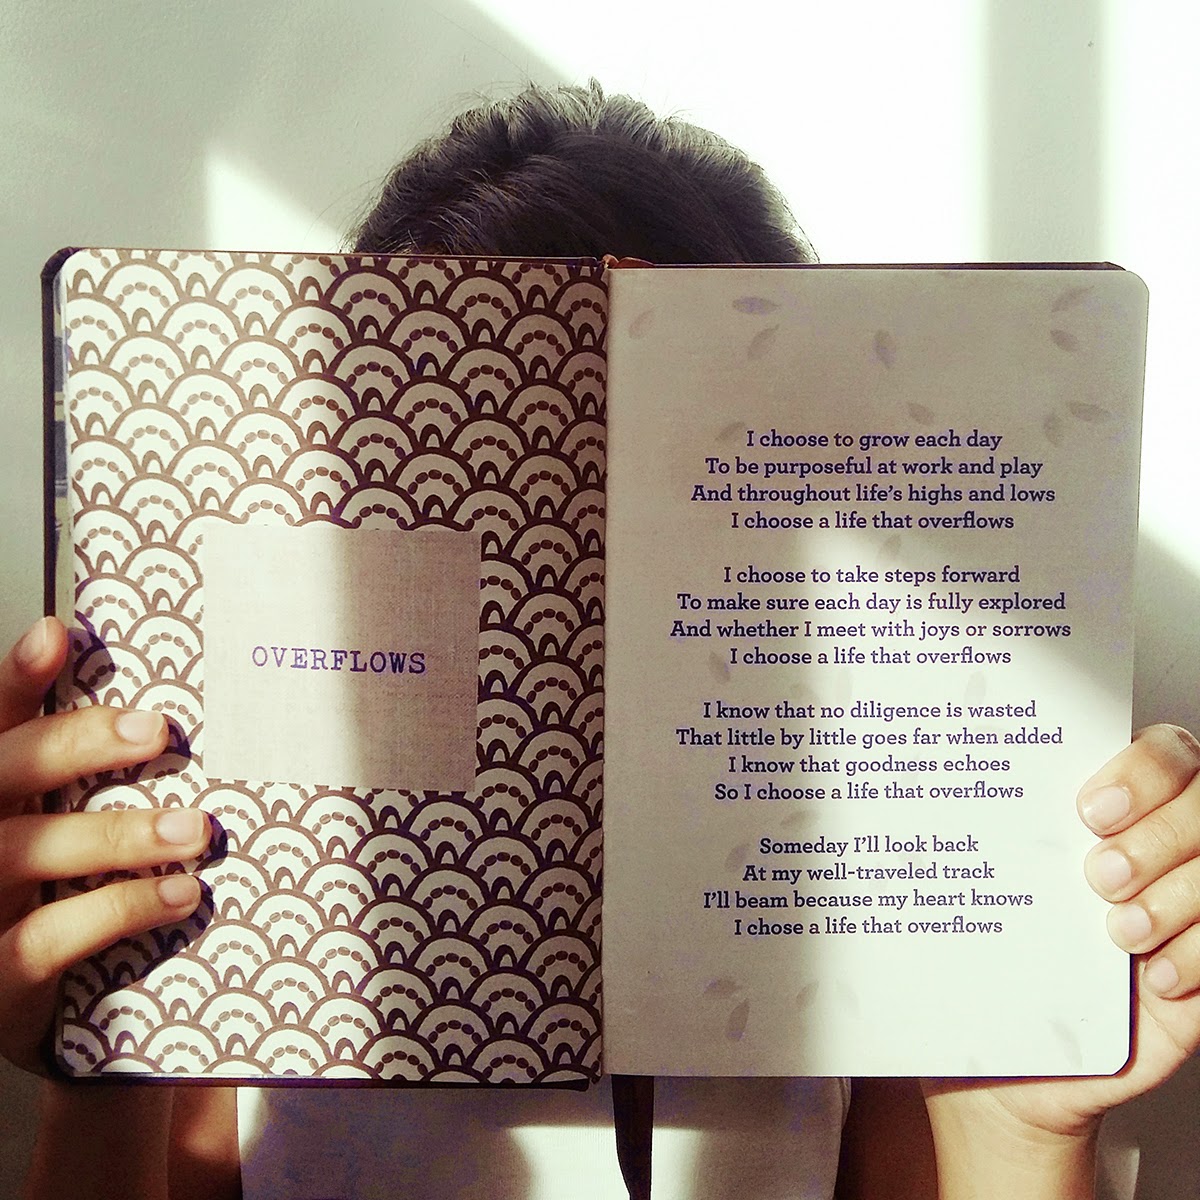 OVERFLOWS
I choose to grow each day
To be purposeful at work and play
And throughout life's highs and lows
I choose a life that overflows
I choose to take steps forward
To make sure each day is fully explored
And whether I meet with joys or sorrows
I choose a life that overflows
I know that no diligence is wasted
That little by little goes far when added
I know that goodness echoes
So I choose a life that overflows
Someday I'll look back
At my well-traveled track
I'll beam because my heart knows
I chose a life that overflows